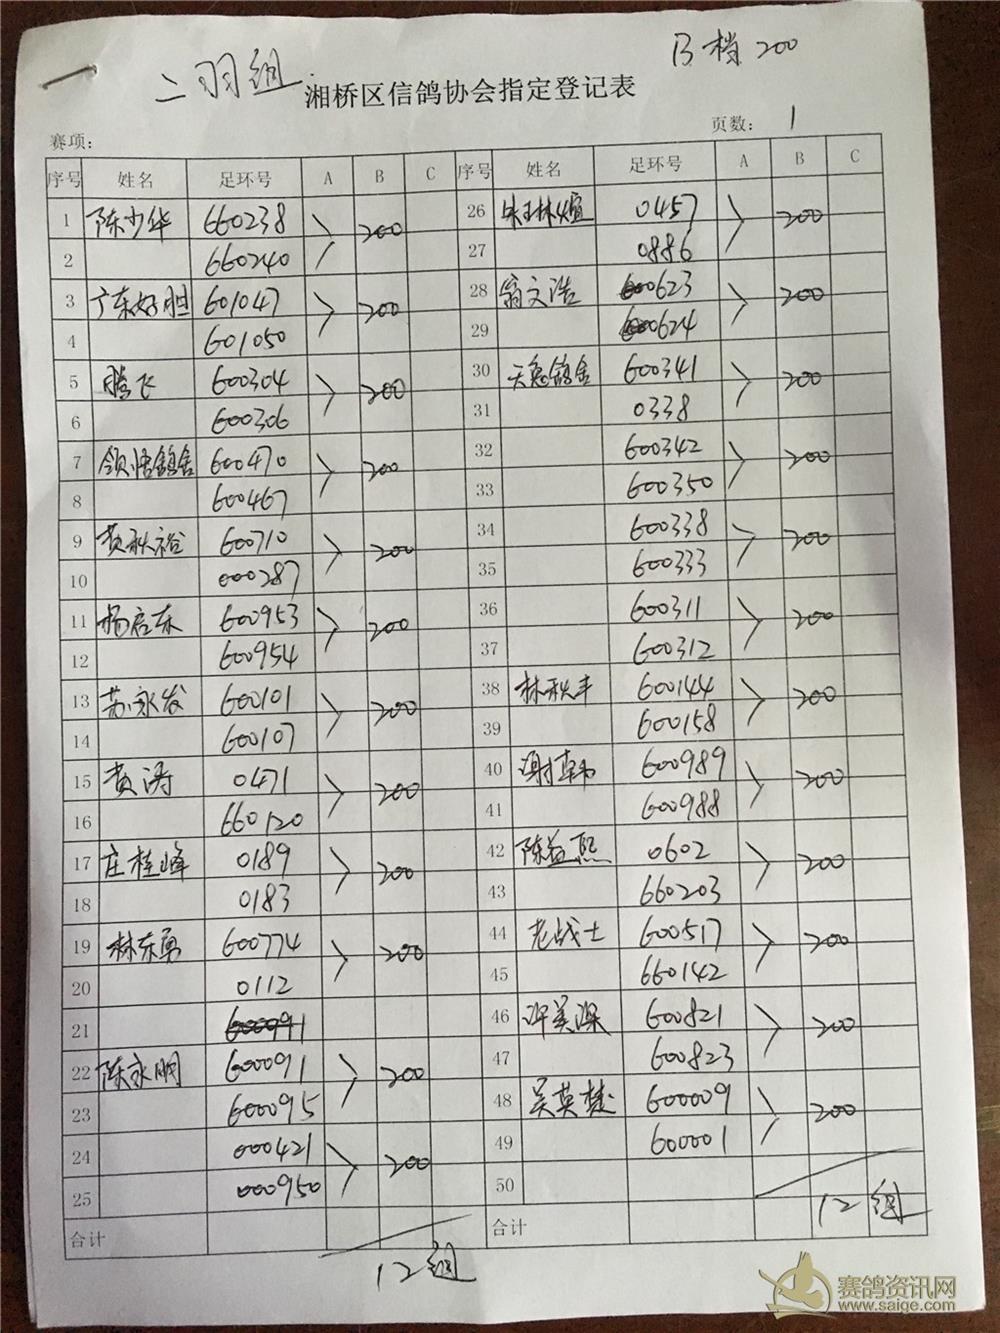 二羽组
B档200
湘桥区信鸽协会指定登记表
赛项:
页数: 1
序号 姓名 足环号 A B C 序号 姓名 足环号 A B C
1 陈少华 660238 200 26 0457 200
2 660240 27 0886
3 广东好胆 601047 200 28 翁文浩 0623 200
4 601050 29 0624
5 腾飞 600304 200 30 天逸鸽舍 600341 200
6 600306 31 0338
7 领悟鸽舍 600470 200 32 600342 200
8 600467 33 600350
9 黄秋裕 600710 200 34 600338 200
10 000287 35 600333
11 杨启东 600953 200 36 600311 200
12 600954 37 600312
13 苏永发 600101 200 38 林秋丰 600144 200
14 600107 39 600158
15 黄涛 0471 200 40 谢 600989 200
16 660120 41 600988
17 庄桂峰 0189 200 42 陈益熙 0602 200
18 0183 43 660203
19 林东勇 600774 200 44 老战士 600517 200
20 0112 45 660142
21 600091 46 许美深 600821 200
22 陈永鹏 600091 200 47 600823
23 600095 48 吴英楚 600009 200
24 000421 200 49 600001
25 000950 50
合计 12组 合计 12组
赛鸽资讯网
www.saige.com